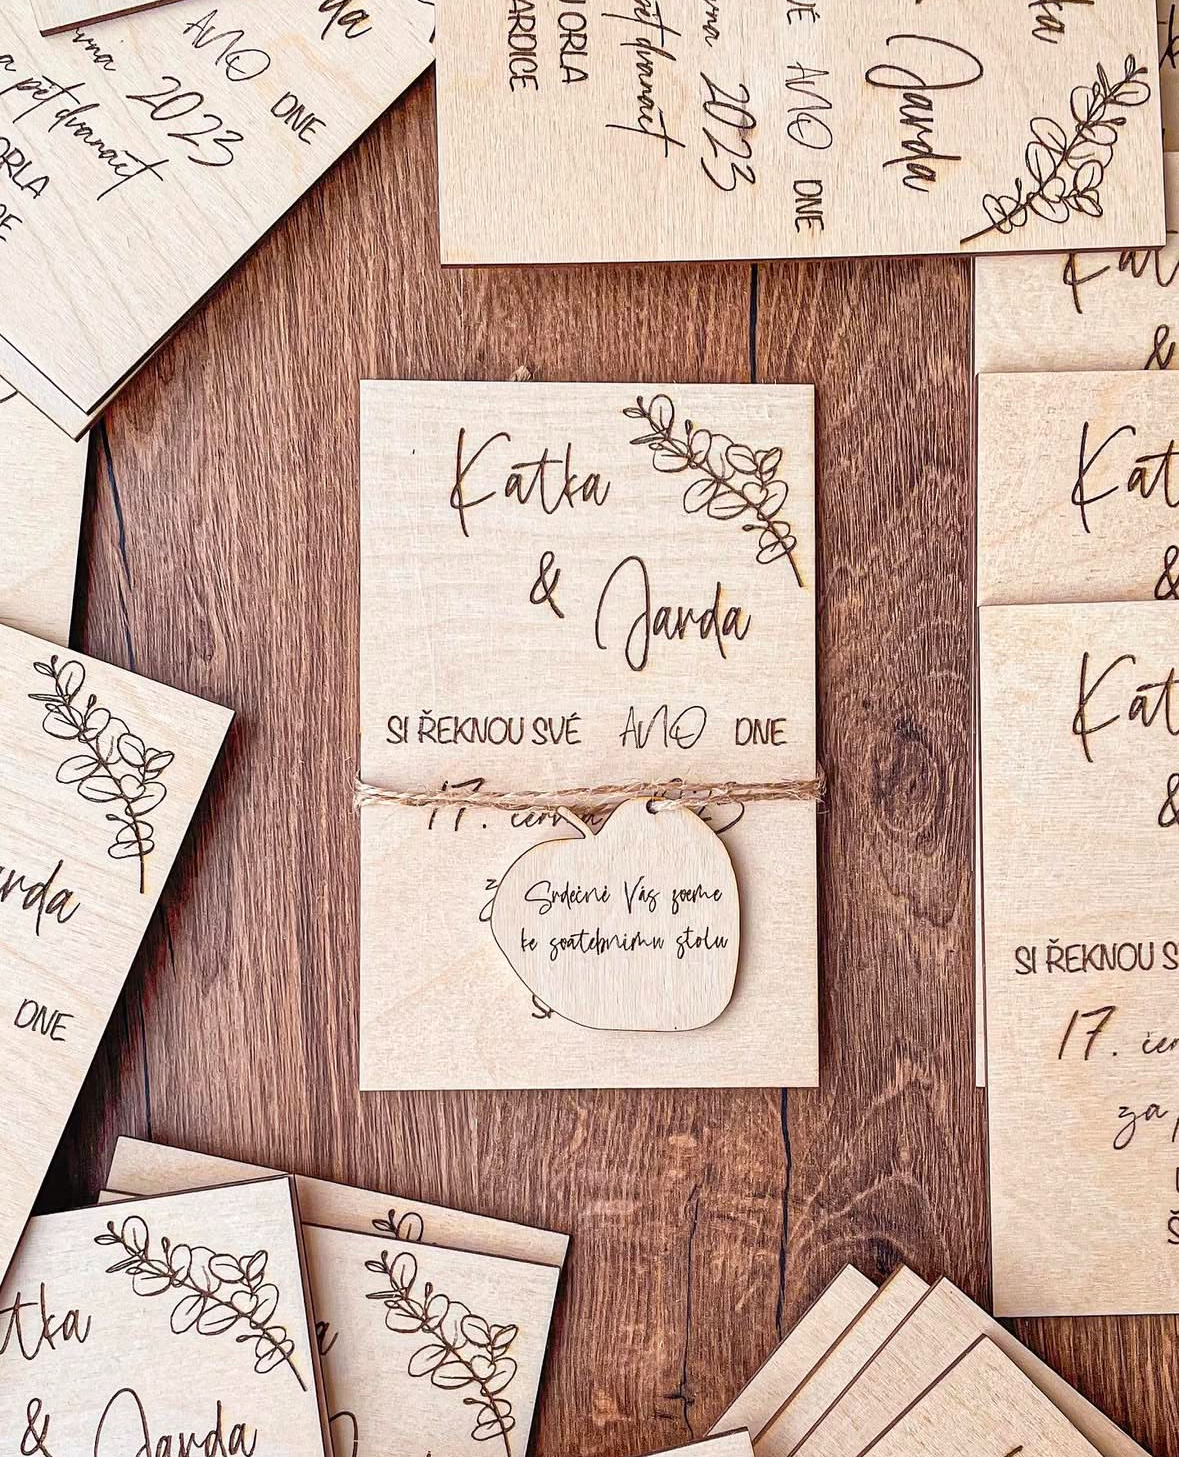 Katka
& Jarda
SI ŘEKNOU SVÉ ANO DNE
17. června
Srdečně Vás zveme
ke svatebnímu stolu
da
ANO DNE
2023
pět dvanáct
ORLA
Jarda
VÉ ANO DNE
2023
pět dvanáct
ORLA
ARDICE
Kat
&
Kat
&
Kat
&
SI ŘEKNOU S
17. čer
za p
arda
DNE
tka
& Jarda